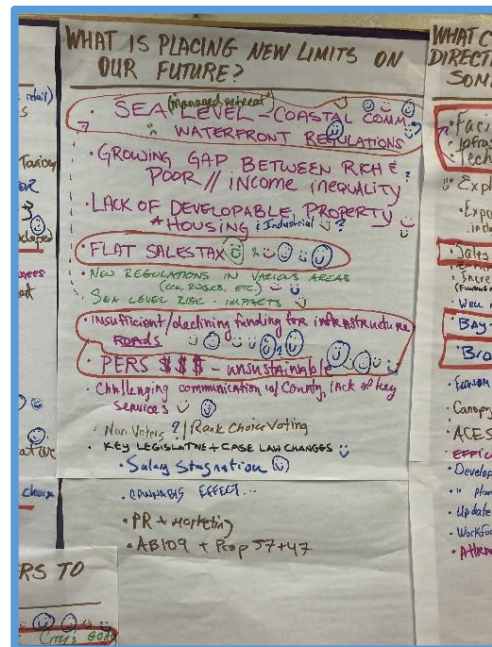 WHAT IS PLACING NEW LIMITS ON
OUR FUTURE?
(managed retreat)
• SEA LEVEL - COASTAL COMM.
WATERFRONT REGULATIONS ?
• GROWING GAP BETWEEN RICH &
POOR // INCOME INEQUALITY ?
• LACK OF DEVELOPABLE PROPERTY
* HOUSING & Industrial ?
• FLAT SALES TAX
• NEW REGULATIONS IN VARIOUS AREAS
SEA LEVEL RISE - IMPACTS
• INSUFFICIENT/declining funding for infrastructure
ROADS
• PERS $$$ - unsustainable
• Challenging communication w/ County, lack of key
services
• Non Voters ? / Rank Choice Voting
• KEY LEGISLATIVE + CASE LAW CHANGES
• Salary Stagnation
• CANNABIS EFFECT...
• PR + Marketing
• AB109 + Prop 57+47
RS TO
CITY'S GOA
retail)
WHAT C
DIRECTI
SOM
• Faci
• Infra
• Tech
• Expl
• Expa
• Sales
• Incre
• Well
• BAY
• Bro
• Canopy
• ACES
• EFFIC
• Develop
• " plan
• Update
• Workfo